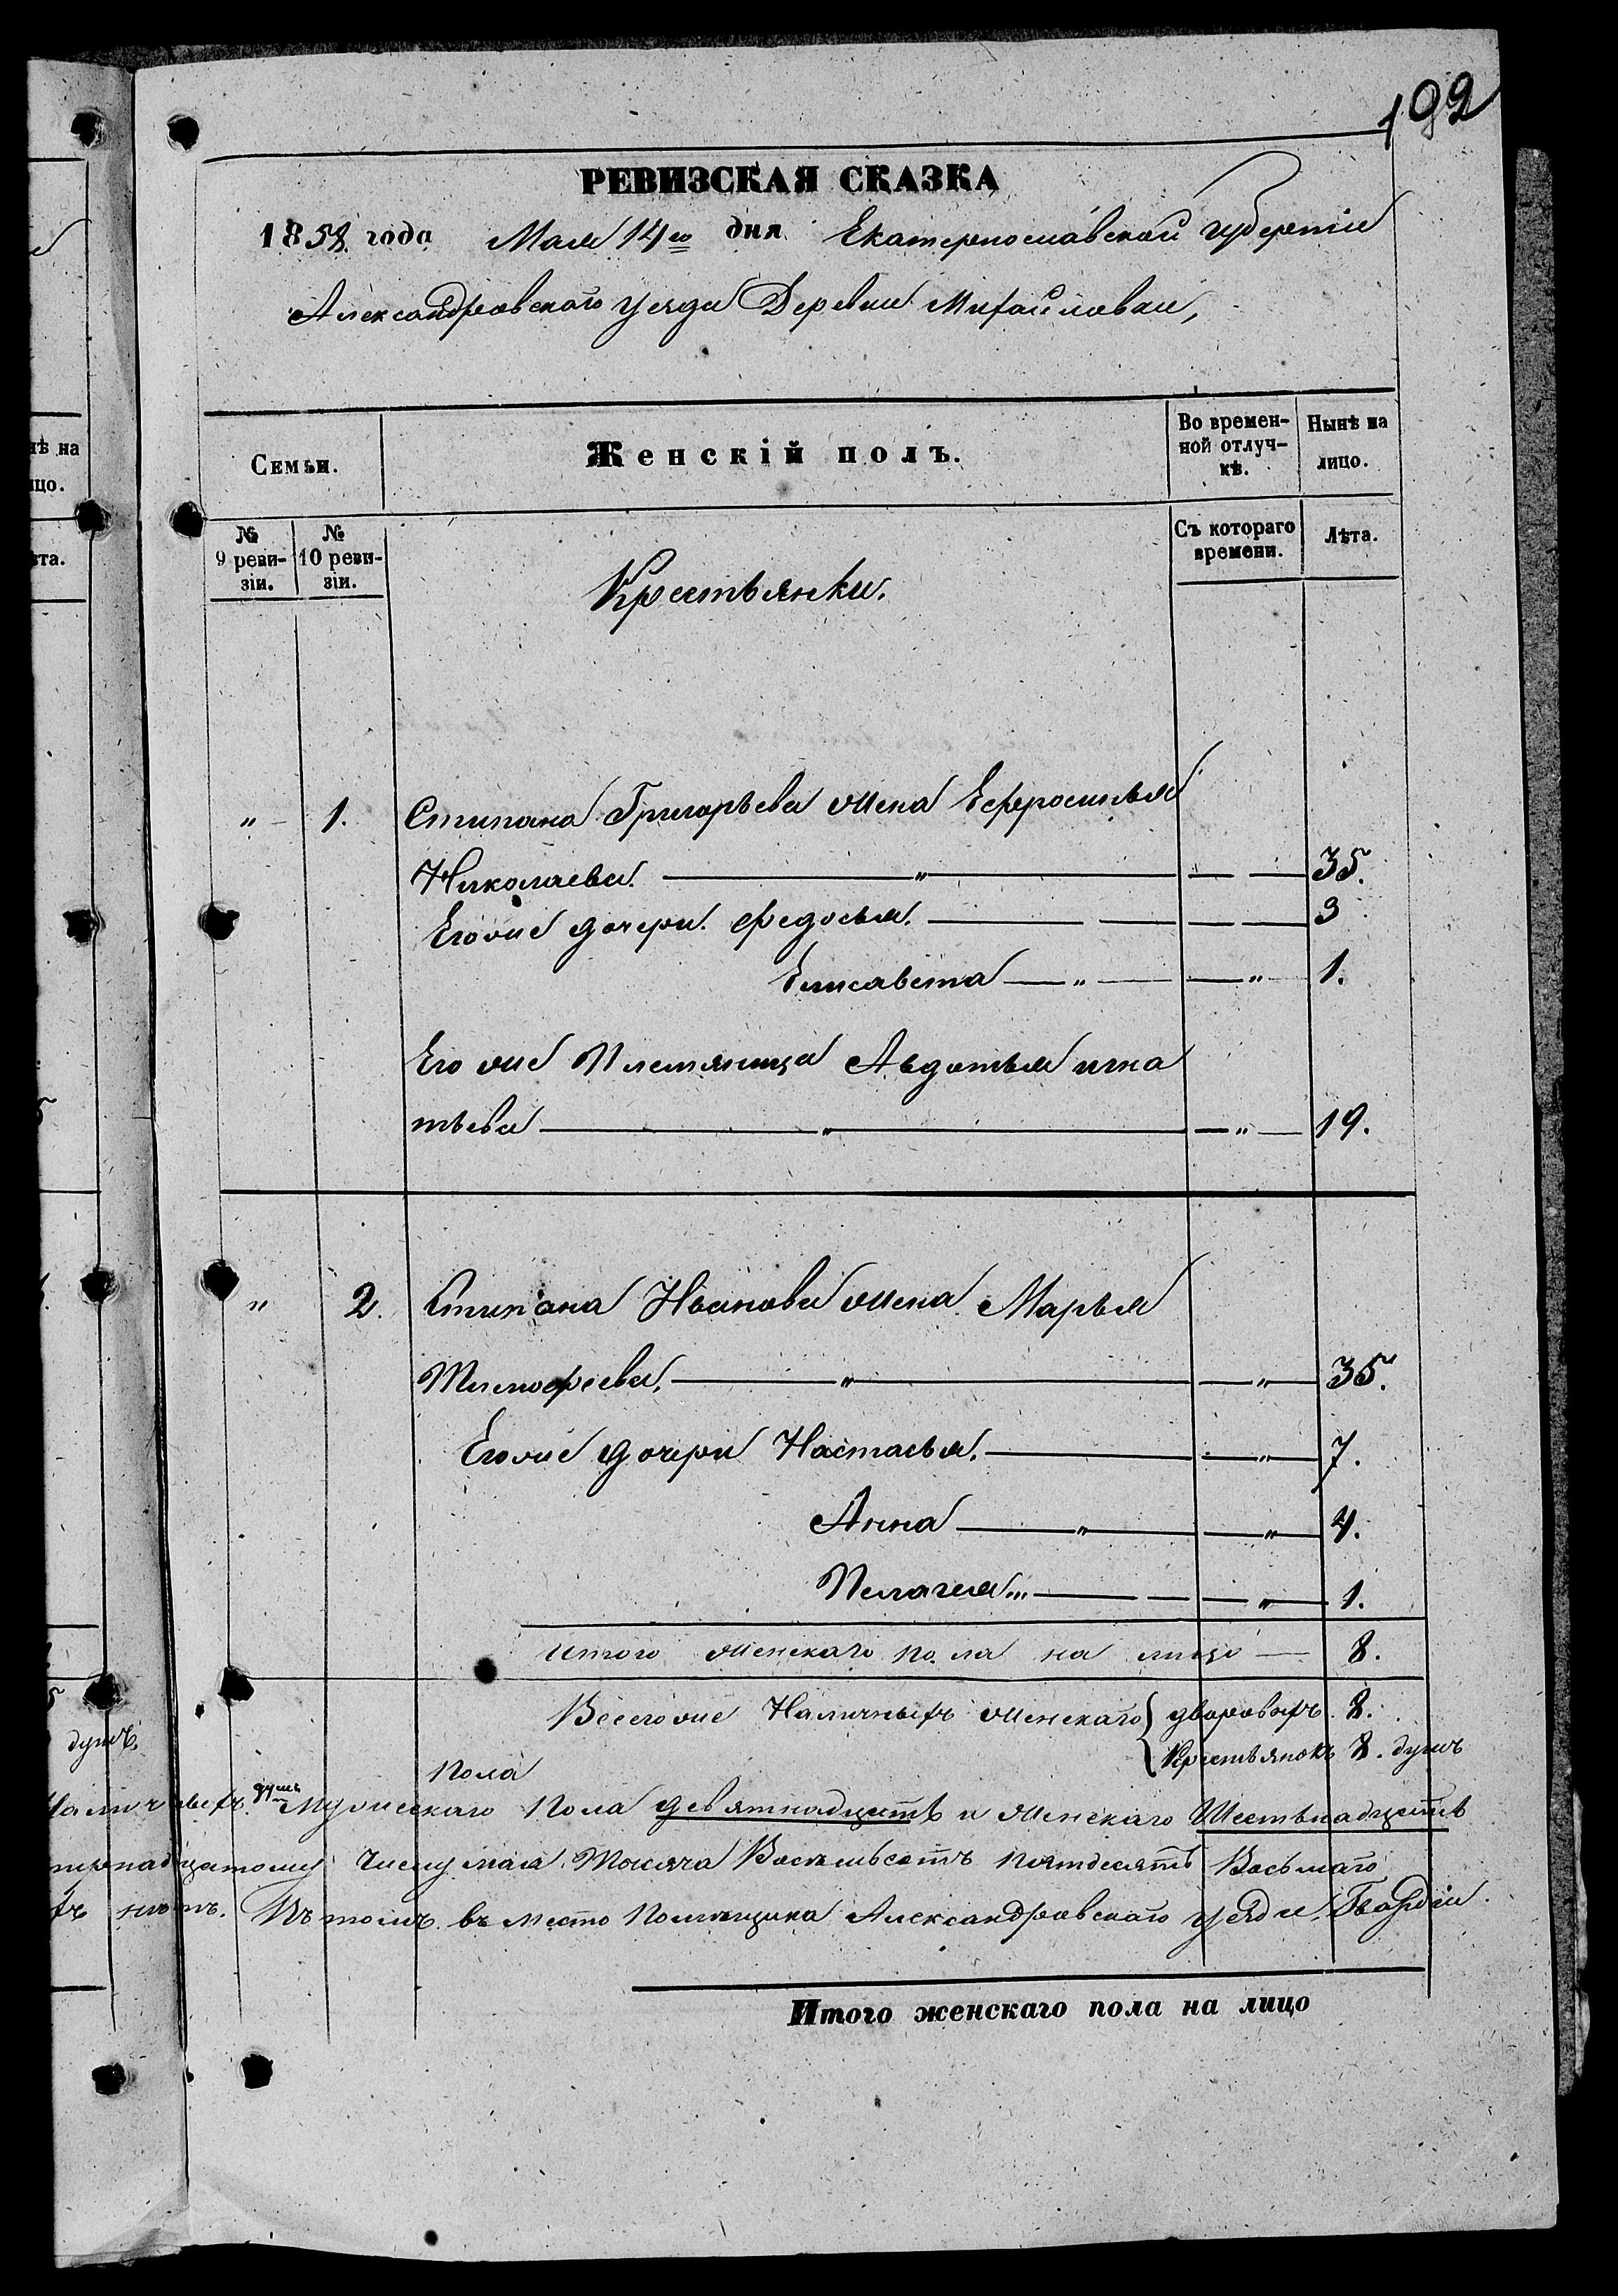 192
РЕВИЗСКАЯ СКАЗКА
1858 года Мая 14го дня Екатеринославской губернiи
Александровскаго уезда Деревни Михайловки,
Семьи. Женскій полъ. Во времен-ной отлуч-кѣ. Нынѣ на лицо.
№ 9 реви-зіи. № 10 реви-зіи. Съ котораго времени. Лѣта.
Крестьянки.
" 1. Стипана Григорьева жена Ефросинья
Николаева. " 35.
Его же дочери Федосья. 3
Елисавета " " 1.
Его же Племяница Авдотья игна
тьева " " 19.
" 2. Стипана Иванова жена Марья
Тимофеева. " " 35.
Его же дочери Настасья. " 7.
Анна " " 4.
Пелагея " 1.
Итого женскаго пола на лицо 8.
Всего же Наличныхъ женскаго дворовыхъ 8.
Пола Крестьянокъ 8. душъ
душъ Мужескаго пола девятнадцать и женскаго Шестьнадцать
цатому числу мая Тысяча Восемьсотъ пятдесятъ Восьмаго
нѣтъ. Въ томъ вместо Помещика Александровскаго уезда Гвардiи
Итого женскаго пола на лицо